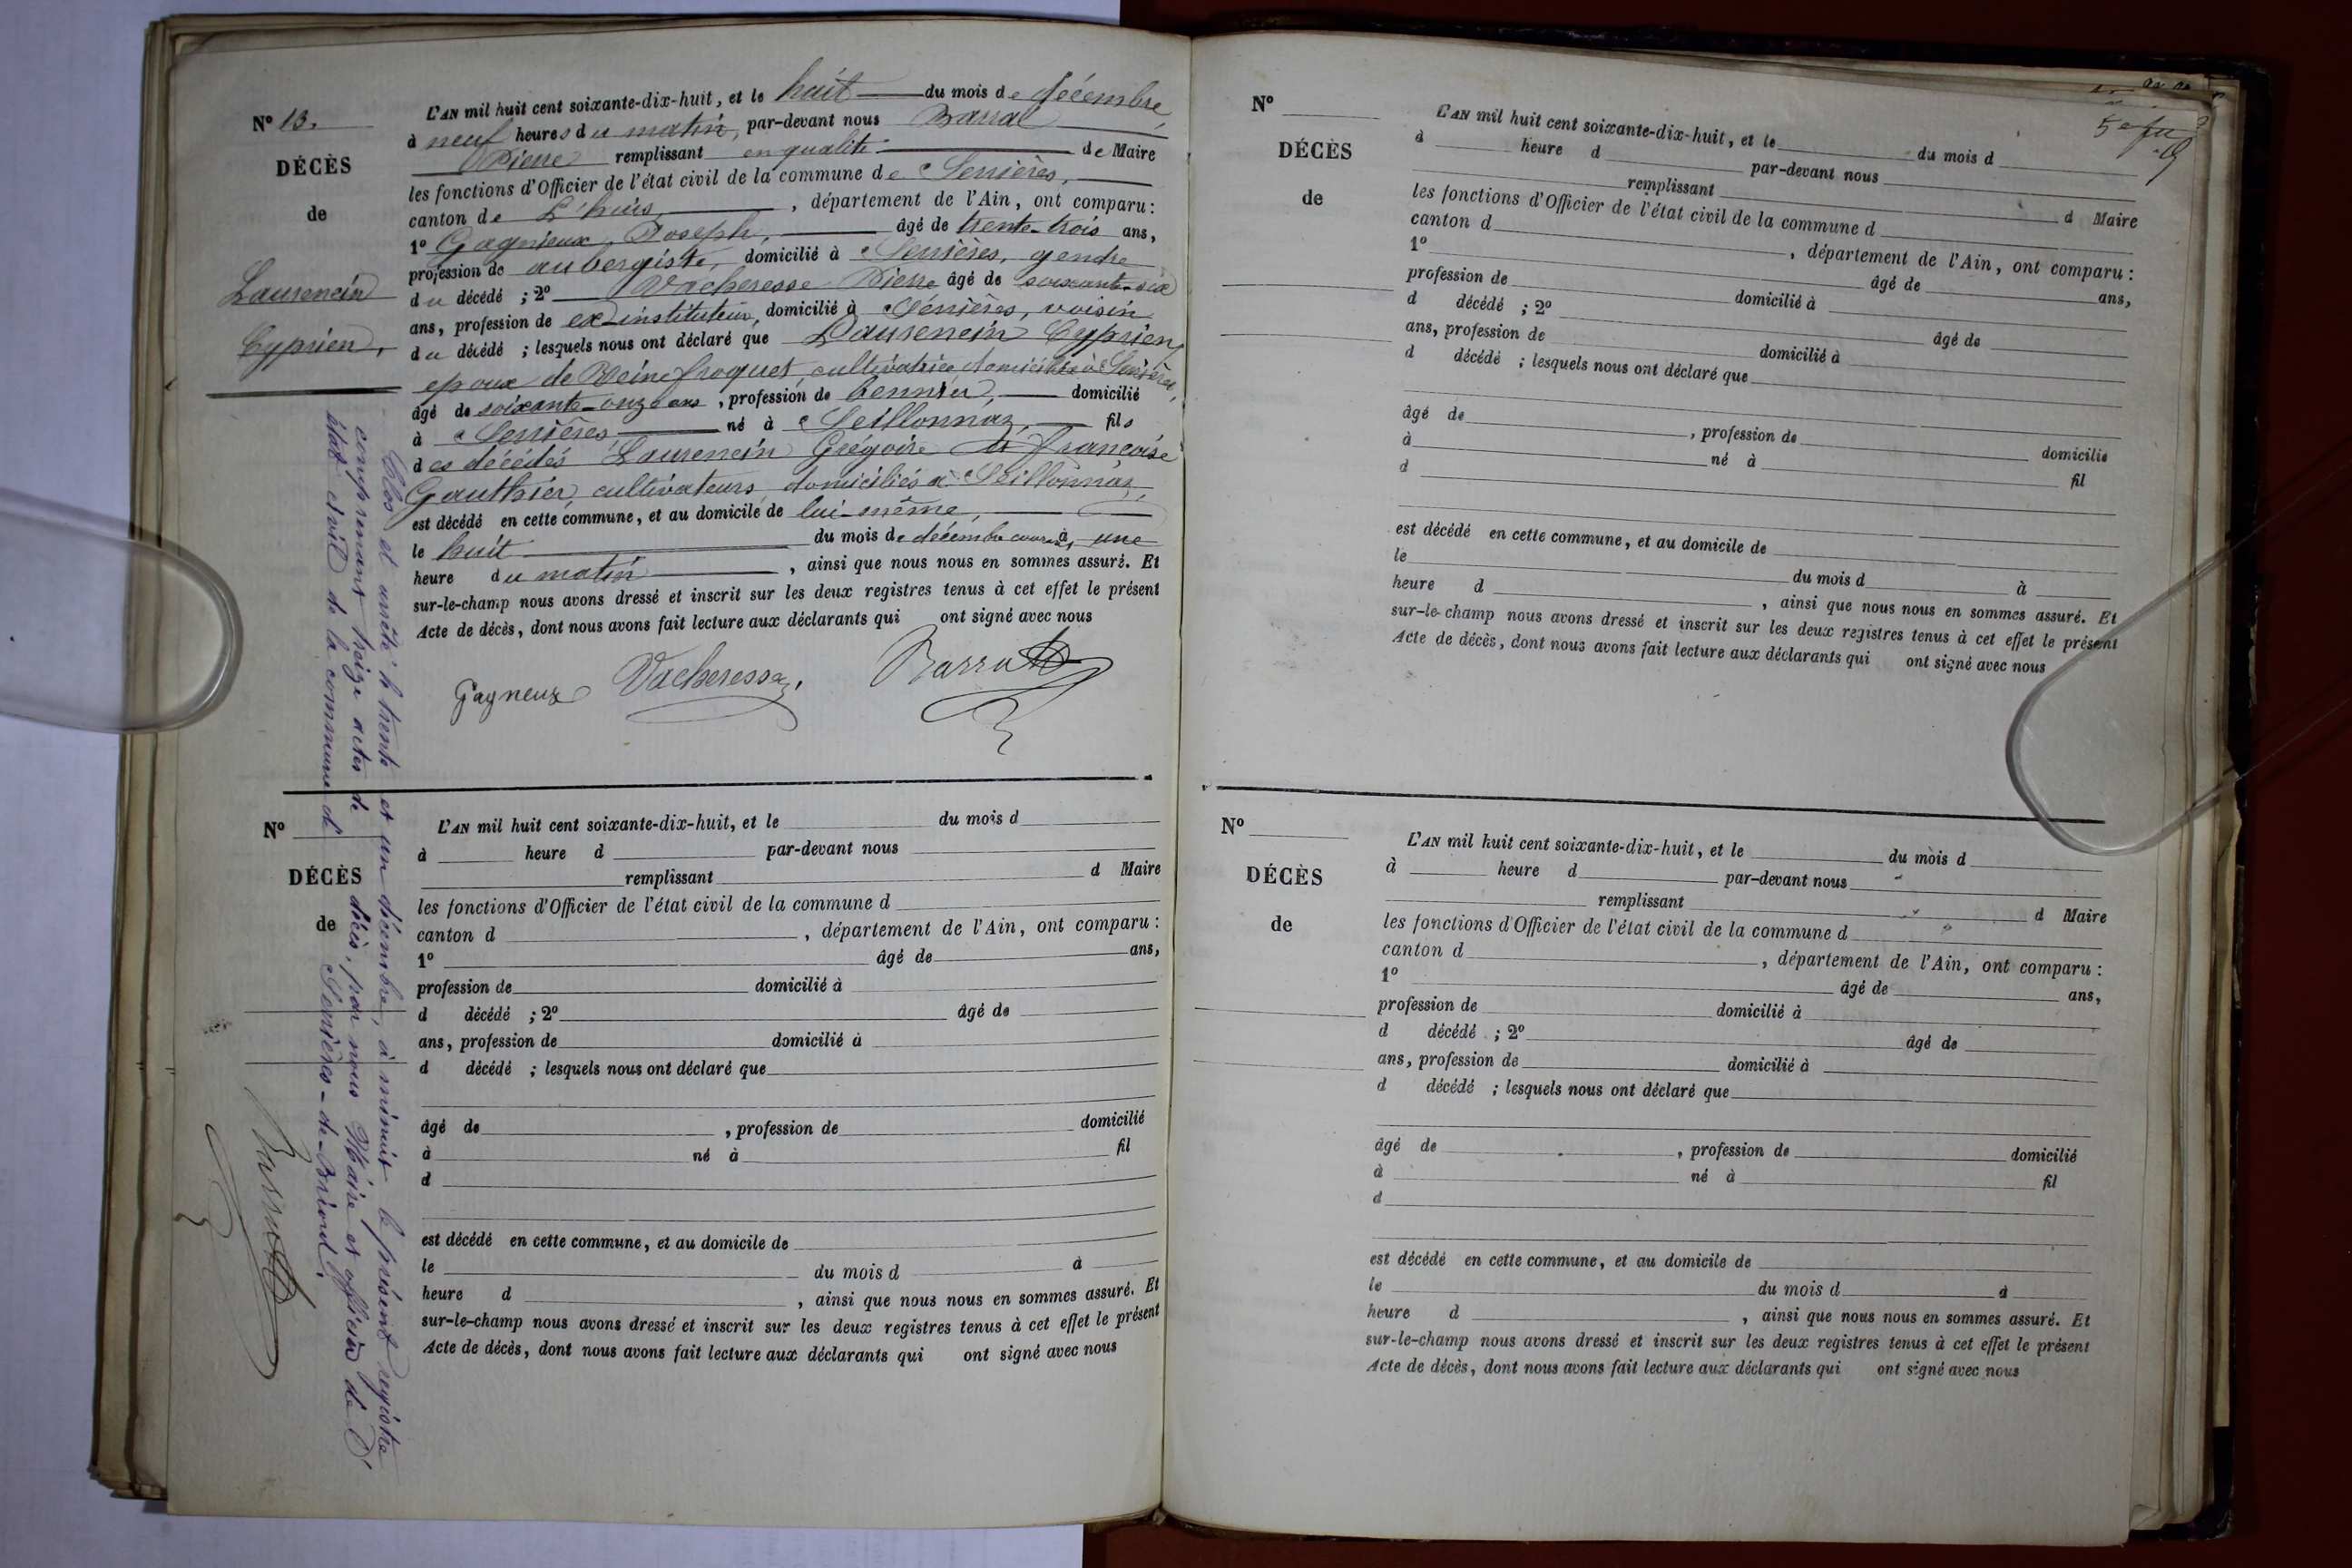 N° 13.
DÉCÈS
de
Laurencin
Cyprien,
L'AN mil huit cent soixante-dix-huit, et le huit du mois de décembre,
à neuf heures du matin, par-devant nous Barral
Pierre remplissant en qualité de Maire
les fonctions d'Officier de l'état civil de la commune de Serrières,
canton de L'huis, département de l'Ain, ont comparu :
1° Gagnieux, Joseph, âgé de trente-trois ans,
profession de aubergiste, domicilié à Serrières, gendre
du décédé ; 2° Vacheresse Pierre âgé de soixante-six
ans, profession de ex-instituteur, domicilié à Serrières, voisin
du décédé ; lesquels nous ont déclaré que Laurencin Cyprien,
époux de Reine froquet, cultivatrice, domiciliée à Serrières,
âgé de soixante-onze ans, profession de domicilié
à Serrières né à Seillonnaz, fils
des décédés Laurencin Grégoire et françoise
Gauthier, cultivateurs, domiciliés à Seillonnaz,
est décédé en cette commune, et au domicile de lui-même,
le huit du mois de décembre courant, à une
heure du matin, ainsi que nous nous en sommes assuré. Et
sur-le-champ nous avons dressé et inscrit sur les deux registres tenus à cet effet le présent
Acte de décès, dont nous avons fait lecture aux déclarants qui ont signé avec nous
Gagneux Vacheresse, Barral
Clos et arrêté, le trente et un décembre, à minuit le présent registre
comprenant treize actes de décès, par nous Maire et officier de l'
état civil de la commune de Serrières-de-Briord.
Barral
N°
DÉCÈS
de
L'AN mil huit cent soixante-dix-huit, et le du mois d
à heure d par-devant nous
remplissant d Maire
les fonctions d'Officier de l'état civil de la commune d
canton d , département de l'Ain, ont comparu :
1° âgé de ans,
profession de domicilié à
d décédé ; 2° âgé de
ans, profession de domicilié à
d décédé ; lesquels nous ont déclaré que
âgé de , profession de domicilié
à né à fil
d
est décédé en cette commune, et au domicile de
le du mois d à
heure d , ainsi que nous nous en sommes assuré. Et
sur-le-champ nous avons dressé et inscrit sur les deux registres tenus à cet effet le présent
Acte de décès, dont nous avons fait lecture aux déclarants qui ont signé avec nous
N°
DÉCÈS
de
L'AN mil huit cent soixante-dix-huit, et le du mois d
à heure d par-devant nous
remplissant d Maire
les fonctions d'Officier de l'état civil de la commune d
canton d , département de l'Ain, ont comparu :
1° âgé de ans,
profession de domicilié à
d décédé ; 2° âgé de
ans, profession de domicilié à
d décédé ; lesquels nous ont déclaré que
âgé de , profession de domicilié
à né à fil
d
est décédé en cette commune, et au domicile de
le du mois d à
heure d , ainsi que nous nous en sommes assuré. Et
sur-le-champ nous avons dressé et inscrit sur les deux registres tenus à cet effet le présent
Acte de décès, dont nous avons fait lecture aux déclarants qui ont signé avec nous
N°
DÉCÈS
de
L'AN mil huit cent soixante-dix-huit, et le du mois d
à heure d par-devant nous
remplissant d Maire
les fonctions d'Officier de l'état civil de la commune d
canton d , département de l'Ain, ont comparu :
1° âgé de ans,
profession de domicilié à
d décédé ; 2° âgé de
ans, profession de domicilié à
d décédé ; lesquels nous ont déclaré que
âgé de , profession de domicilié
à né à fil
d
est décédé en cette commune, et au domicile de
le du mois d à
heure d , ainsi que nous nous en sommes assuré. Et
sur-le-champ nous avons dressé et inscrit sur les deux registres tenus à cet effet le présent
Acte de décès, dont nous avons fait lecture aux déclarants qui ont signé avec nous